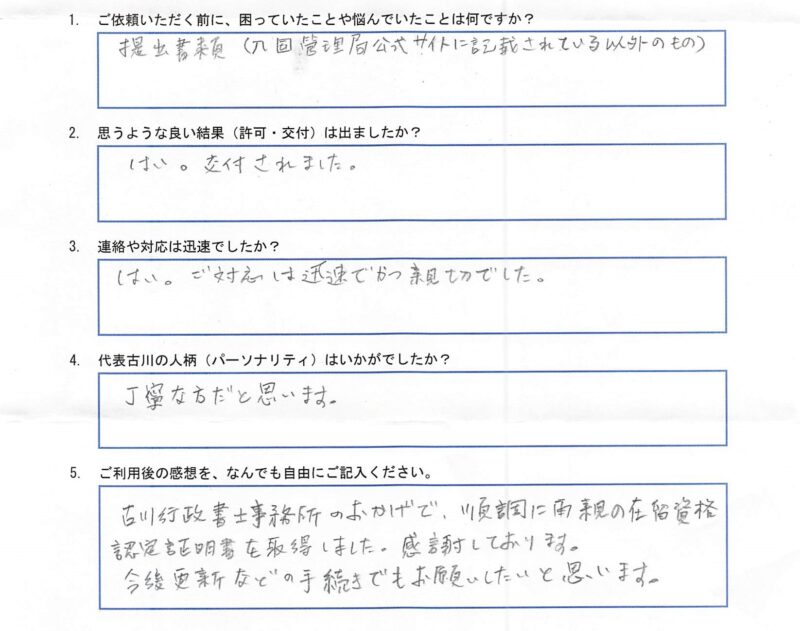 1. ご依頼いただく前に、困っていたことや悩んでいたことは何ですか？
提出書類（入国管理局公式サイトに記載されている以外のもの）
2. 思うような良い結果（許可・交付）は出ましたか？
はい。交付されました。
3. 連絡や対応は迅速でしたか？
はい。ご対応は迅速でかつ親切でした。
4. 代表古川の人柄（パーソナリティ）はいかがでしたか？
丁寧な方だと思います。
5. ご利用後の感想を、なんでも自由にご記入ください。
古川行政書士事務所のおかげで、順調に両親の在留資格
認定証明書を取得しました。感謝しております。
今後更新などの手続きでもお願いしたいと思います。